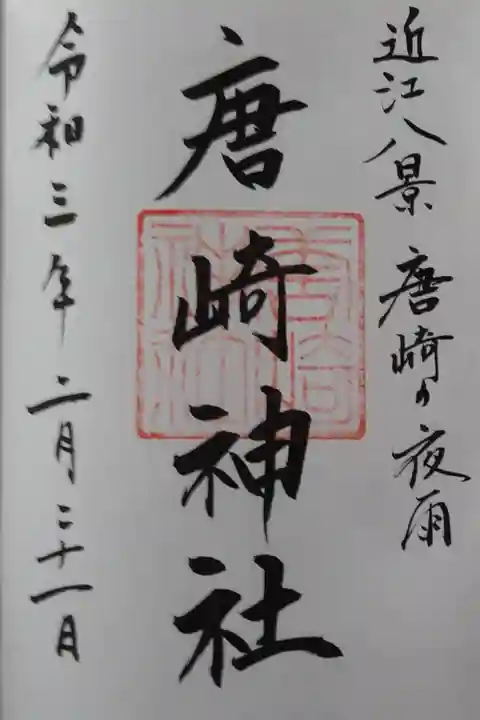 近江八景 唐崎の夜雨
唐崎神社
令和三年二月二十一日